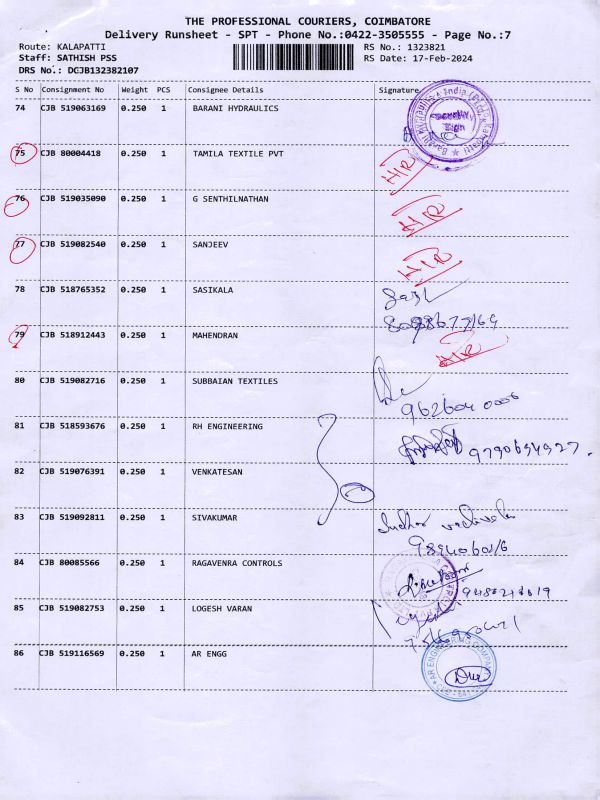 THE PROFESSIONAL COURIERS, COIMBATORE
Delivery Runsheet - SPT - Phone No.:0422-3505555 - Page No.:7
Route: KALAPATTI RS No.: 1323821
Staff: SATHISH PSS RS Date: 17-Feb-2024
DRS No.: DCJB132382107
S No Consignment No Weight PCS Consignee Details Signature
74 CJB 519063169 0.250 1 BARANI HYDRAULICS
75 CJB 80004418 0.250 1 TAMILA TEXTILE PVT H/R
76 CJB 519035090 0.250 1 G SENTHILNATHAN H/R
77 CJB 519082540 0.250 1 SANJEEV H/R
78 CJB 518765352 0.250 1 SASIKALA
79 CJB 518912443 0.250 1 MAHENDRAN H/R
80 CJB 519082716 0.250 1 SUBBAIAN TEXTILES
81 CJB 518593676 0.250 1 RH ENGINEERING
82 CJB 519076391 0.250 1 VENKATESAN
83 CJB 519092811 0.250 1 SIVAKUMAR
84 CJB 80085566 0.250 1 RAGAVENRA CONTROLS
85 CJB 519082753 0.250 1 LOGESH VARAN
86 CJB 519116569 0.250 1 AR ENGG